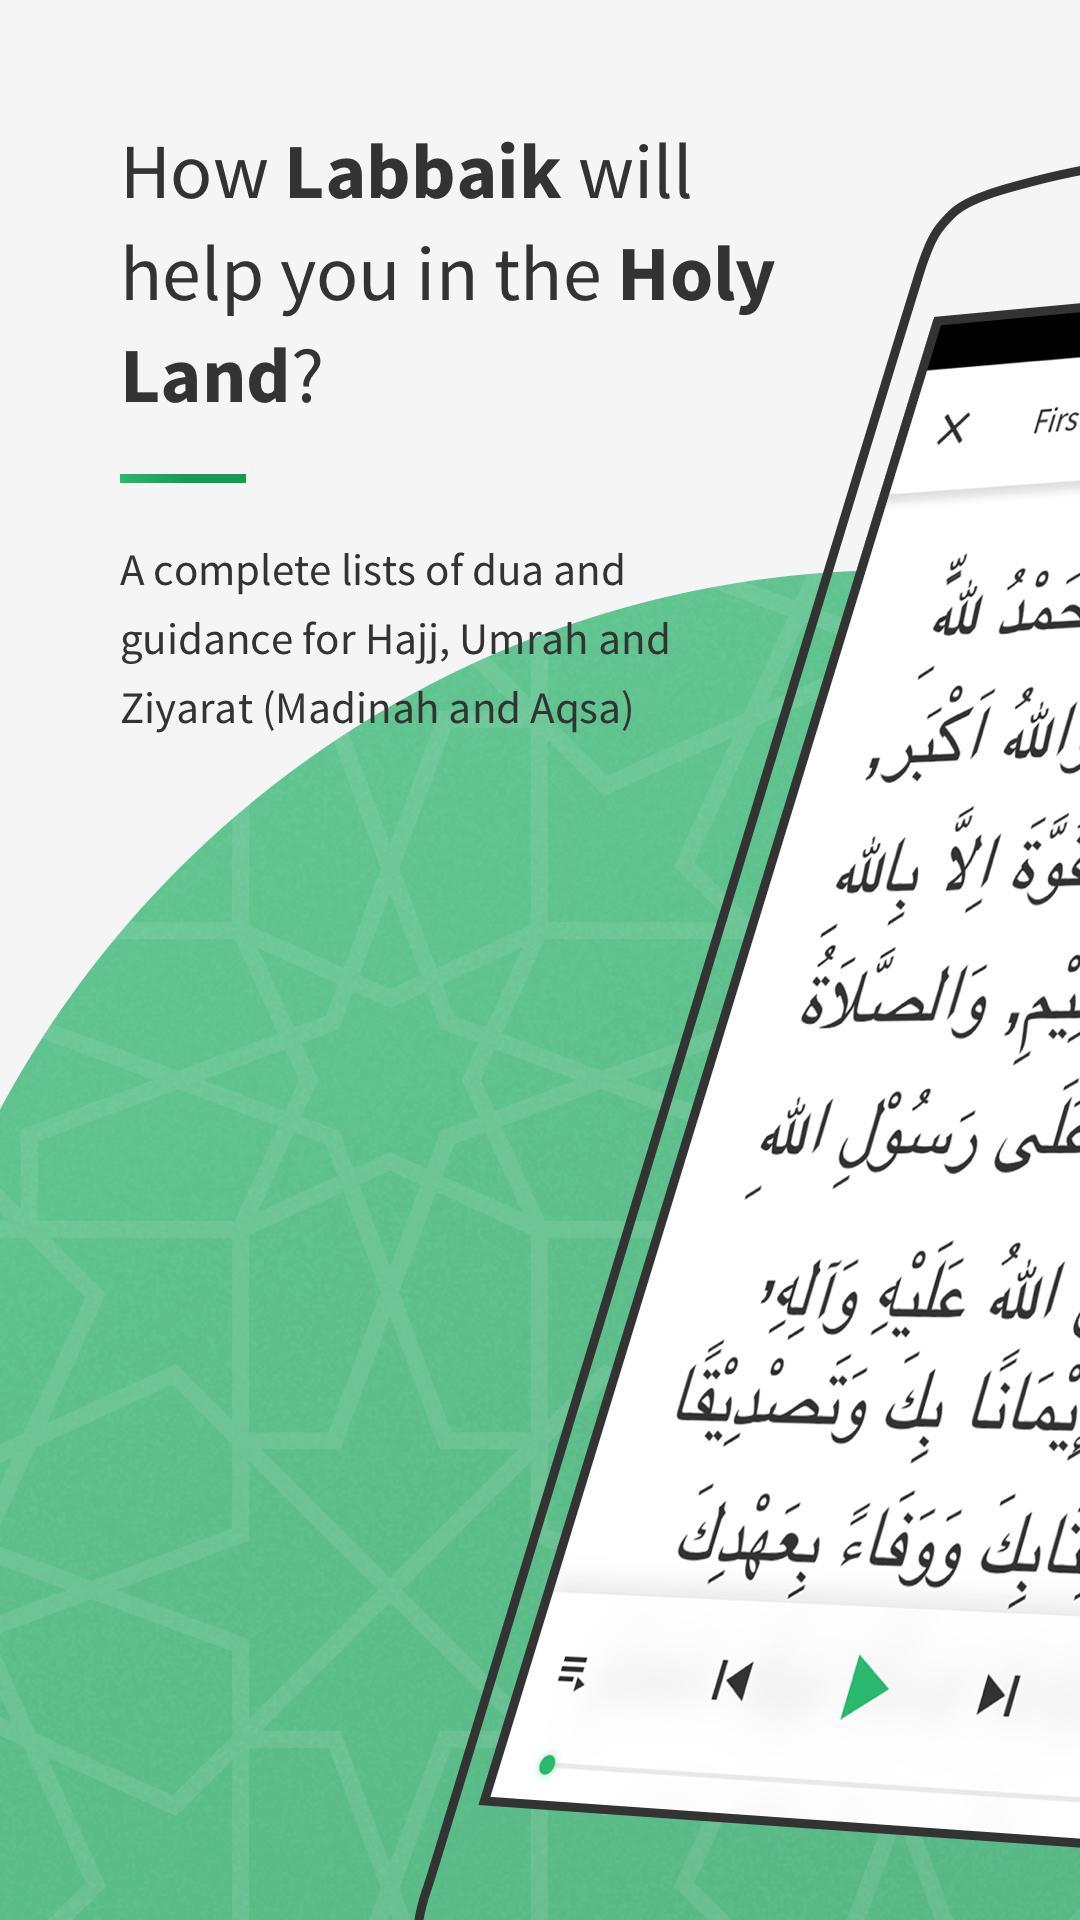 How Labbaik will
help you in the Holy
Land?
A complete lists of dua and
guidance for Hajj, Umrah and
Ziyarat (Madinah and Aqsa)
لله
اَكْبَر,
اِلَّا بِالله
وَالصَّلَاةُ
رَسُوْلِ اللهِ
اللهُ عَلَيْهِ وَآلِهِ,
بِكَ وَتَصْدِيْقًا
وَوَفَاءً بِعَهْدِكَ